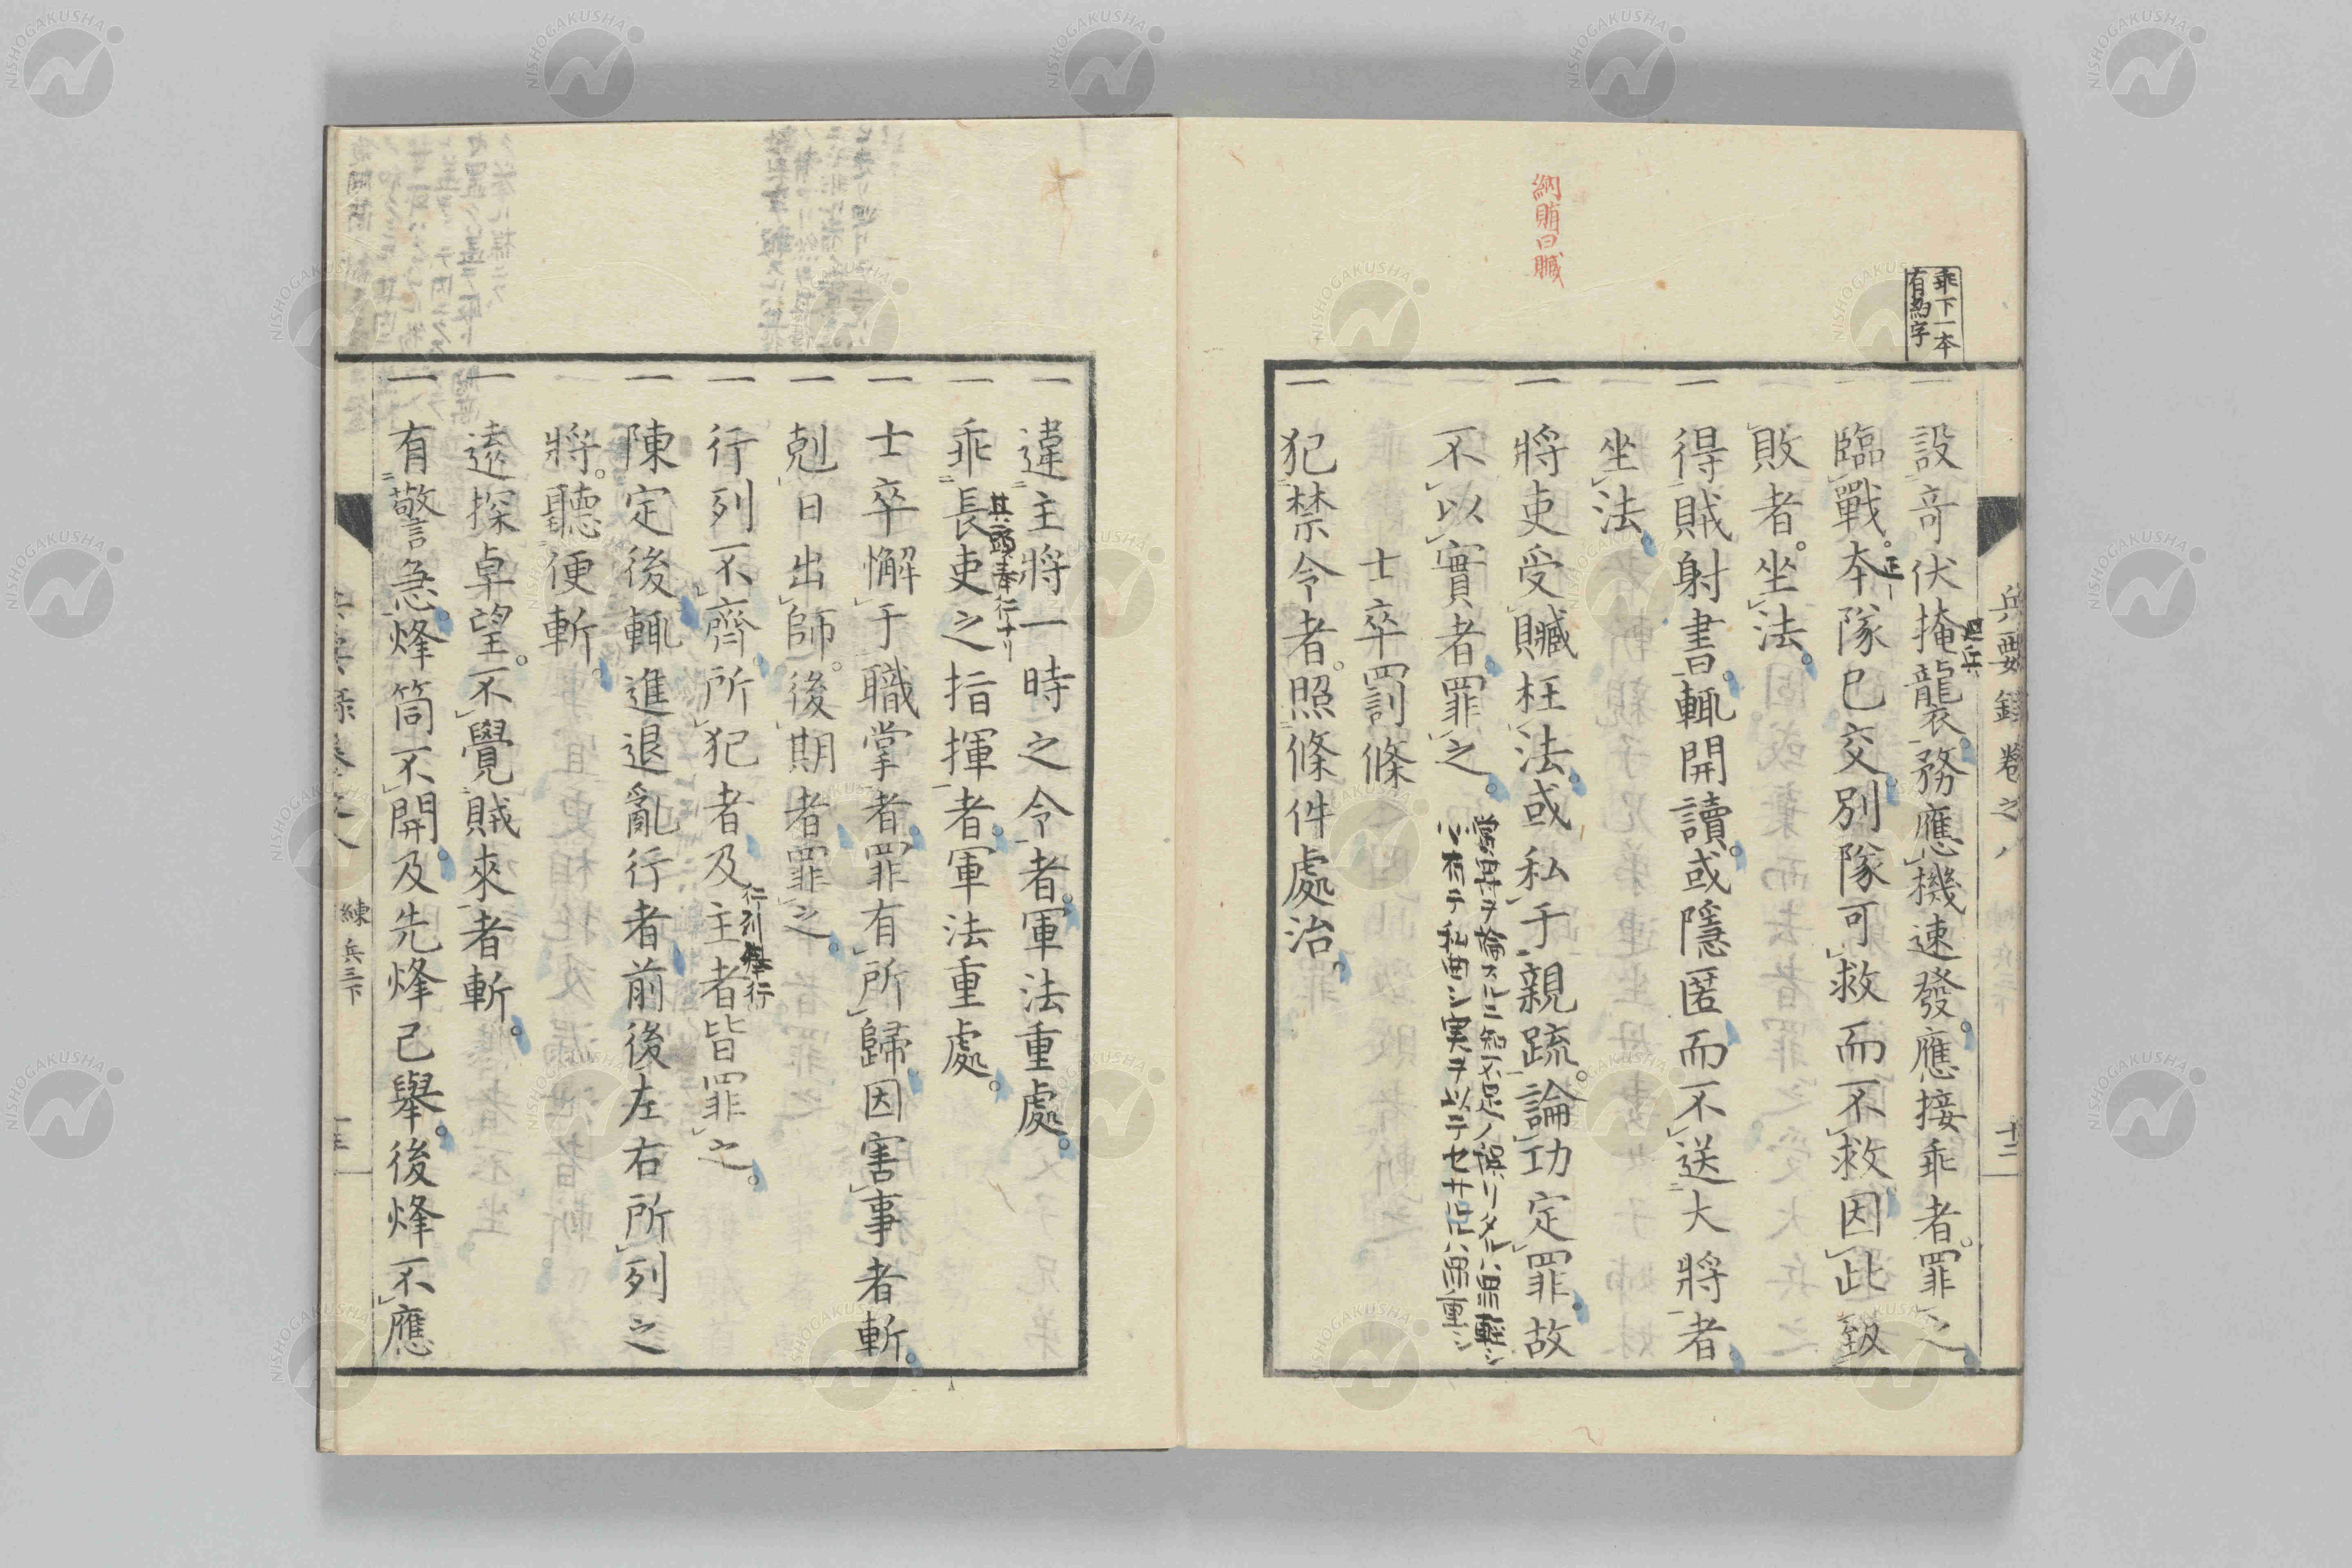 兵要録卷之八
十二
乖下一本
有約字
納賄曰贓
一設竒伏掩襲務應機速發應接乖者罪之
遊兵
一臨戰本隊已交別隊可救而不救因此致
正
敗者坐法
一得賊射書輒開讀或隱匿而不送大將者
坐法
一將吏受贓枉法或私于親疏論功定罪故
不以實者罪之
賞罪ヲ論スルニ知不足ノ誤リタルハ罪軽シ
心有テ私曲シ実ヲ以テセサルハ罪重シ
士卒罰條
一犯禁令者照條件處治
一違主將一時之令者軍法重處
一乖長吏之指揮者軍法重處
其頭奉行ナリ
一士卒懈于職掌者罪有所歸因害事者斬
一剋日出師後期者罪之
一行列不齊所犯者及主者皆罪之
行列奉行
一陳定後輒進退亂行者前後左右所列之
將聽便斬
一遠探卓望不覺賊來者斬
一有警急烽筒不開及先烽已舉後烽不應
練兵三下